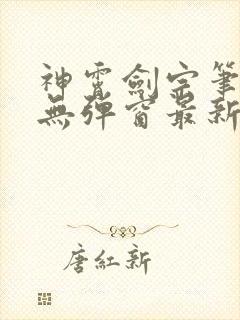 神霄劍宗筆
無彈窗最新
唐紅新